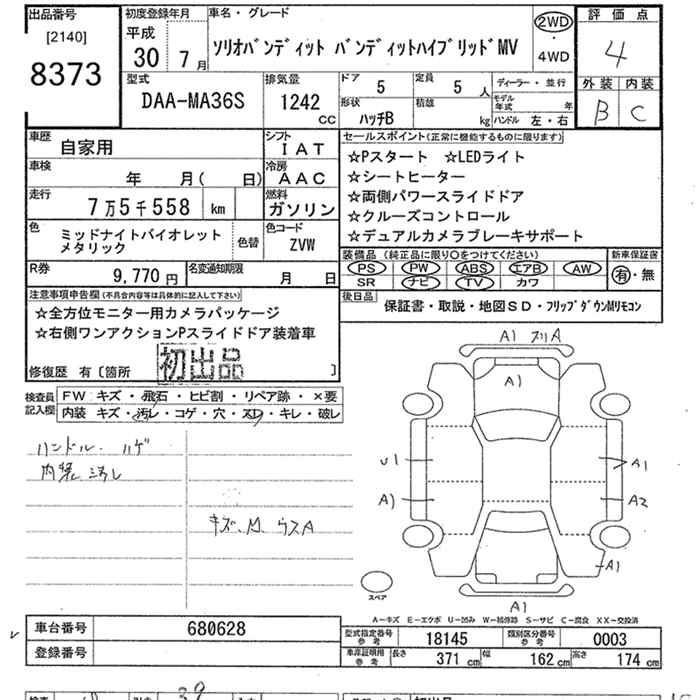 出品番号
[2140]
8373
初度登録年月
平成
30 7 月
車名・グレード
ソリオバンディット バンディットハイブリッドMV
2WD
・
4WD
評価点
4
外装 内装
B C
型式
DAA-MA36S
排気量
1242
cc
ドア
5
定員
5 人
形状
ハッチB
積載
kg
ディーラー・並行
モデル年式 年
ハンドル 左・右
車歴
自家用
シフト
IAT
車検
年 月( 日)
冷房
AAC
走行
7万5千558 km
燃料
ガソリン
色
ミッドナイトバイオレット
メタリック
色替
色コード
ZVW
R券
9,770 円
名変通知期限
月 日
セールスポイント(正常に機能するものに限ります)
☆Pスタート ☆LEDライト
☆シートヒーター
☆両側パワースライドドア
☆クルーズコントロール
☆デュアルカメラブレーキサポート
装備品 (純正品に限り〇をつけてください)
PS PW ABS エアB AW
SR ナビ TV カワ
新車保証書
有・無
後日品
保証書・取説・地図SD・フリップダウンMリモコン
注意事項申告欄(不具合内容等は具体的に記入して下さい)
☆全方位モニター用カメラパッケージ
☆右側ワンアクションPスライドドア装着車
修復歴 有〔箇所 〕
初出品
検査員
記入欄
FW キズ・飛石・ヒビ割・リペア跡・×要
内装 キズ・汚レ・コゲ・穴・スレ・キレ・破レ
ハンドル ハゲ
内装 ヨゴレ
キズ、M、ウスA
A1 ズリA
A1
U1
A1
A1
A2
A1
A1
スペア
A-キズ E-エクボ U-凹み W-補修跡 S-サビ C-腐食 XX-交換済
車台番号
680628
登録番号
型式指定番号
参考
18145
類別区分番号
参考
0003
車庫証明用
参考
長さ
371 cm
幅
162 cm
高さ
174 cm